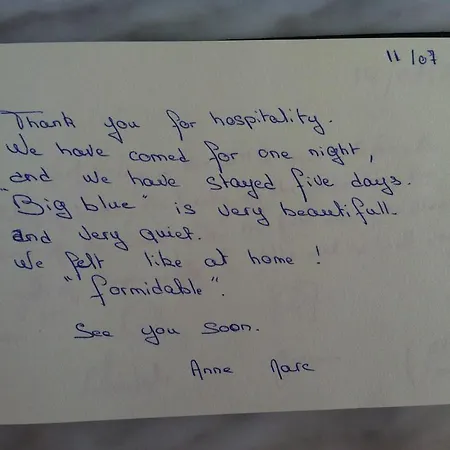 11/07
Thank you for hospitality.
We have comed for one night,
and we have stayed five days.
"Big blue" is very beautifull.
and very quiet.
We felt like at home !
"formidable".
See you soon.
Anne Marc